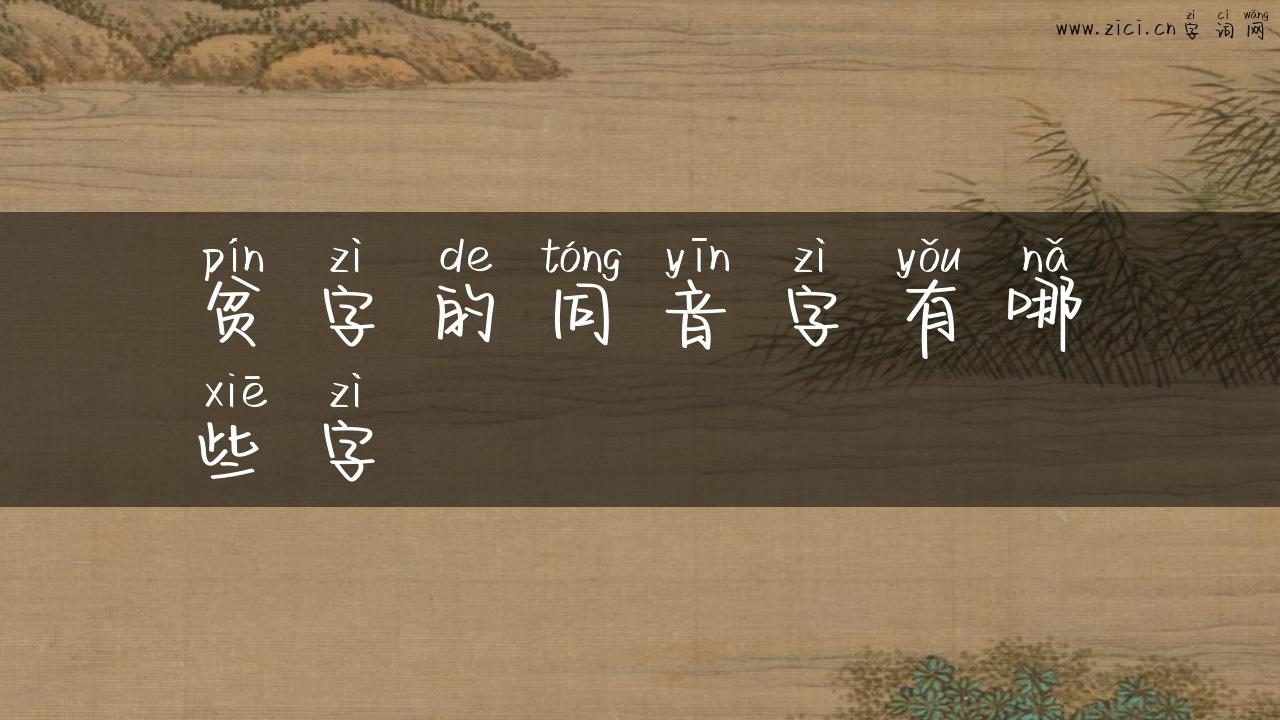 zì cí wǎng
www.zici.cn字词网
pín zì de tóng yīn zì yǒu nǎ
贫字的同音字有哪
xiē zì
些字